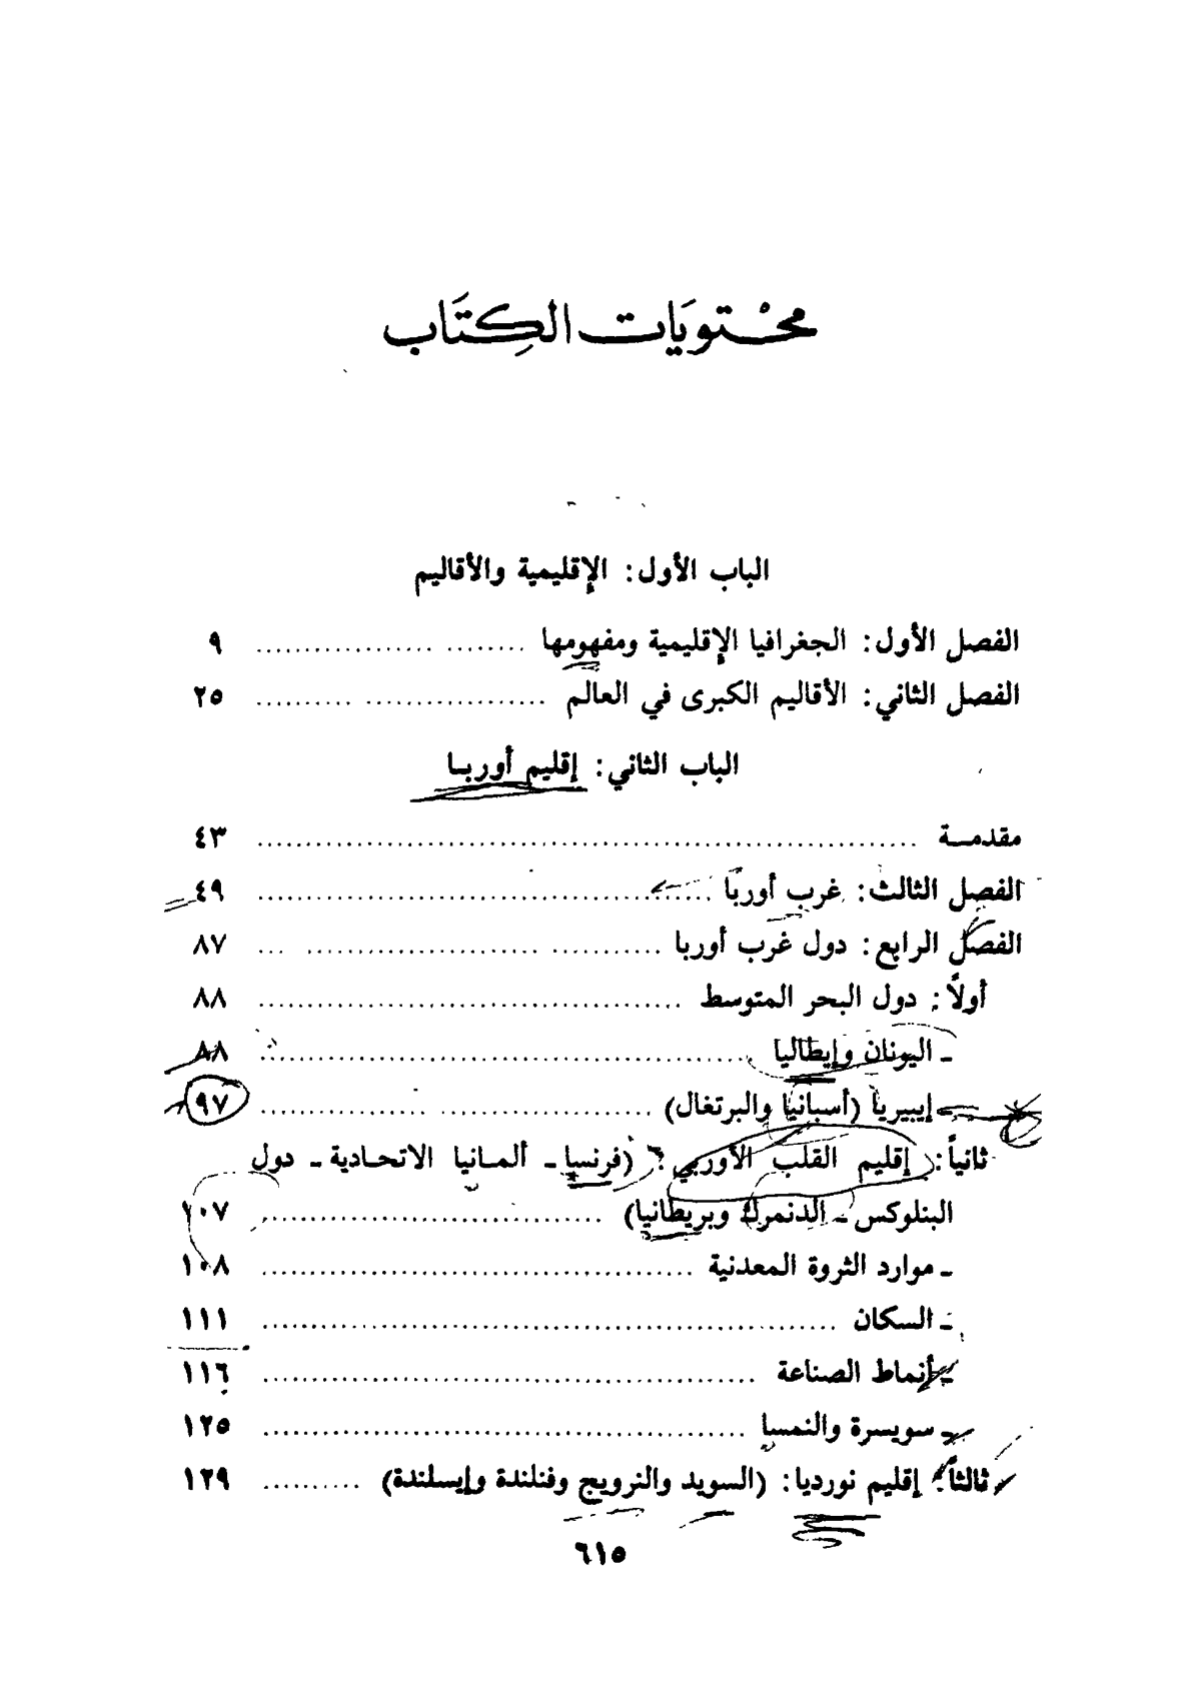 محْتويَات الكِتَاب
الباب الأول: الإقليمية والأقاليم
الفصل الأول: الجغرافيا الإقليمية ومفهومها ........ .................. ٩
الفصل الثاني: الأقاليم الكبرى في العالم .................. .......... ٢٥
الباب الثاني: إقليم أوربـا
مقدمـــة ................................................................ ٤٣
الفصل الثالث: غرب أوربا ............................................ ٤٩
الفصل الرابع: دول غرب أوربا ........... ....................... ... ٨٧
أولاً: دول البحر المتوسط ......................................... ٨٨
ـ اليونان وإيطاليا ................................................ ٨٨
ـ إيبيريا (أسبانيا والبرتغال) ..................... ................ ٩٧
ثانياً: إقليم القلب الأوربي: (فرنسا ـ ألمـانيا الاتحـادية ـ دول
البنلوكس ـ الدنمرك وبريطانيا) ................................. ١٠٧
ـ موارد الثروة المعدنية .......................................... ١٠٨
ـ السكان ........................................................ ١١١
ـ أنماط الصناعة ................................................ ١١٦
ـ سويسرة والنمسا ............................................... ١٢٥
ثالثاً: إقليم نورديا: (السويد والنرويج وفنلندة وإيسلندة) .......... ١٢٩
٦١٥